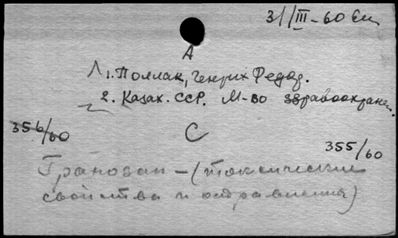 31/III-60 Ем
А
1. Поллак, Генрих Федор.
2. Казах. ССР. М-во здравоохранен.
356/60
С
355/60
Гранозан - (токсические
свойства и отравления)